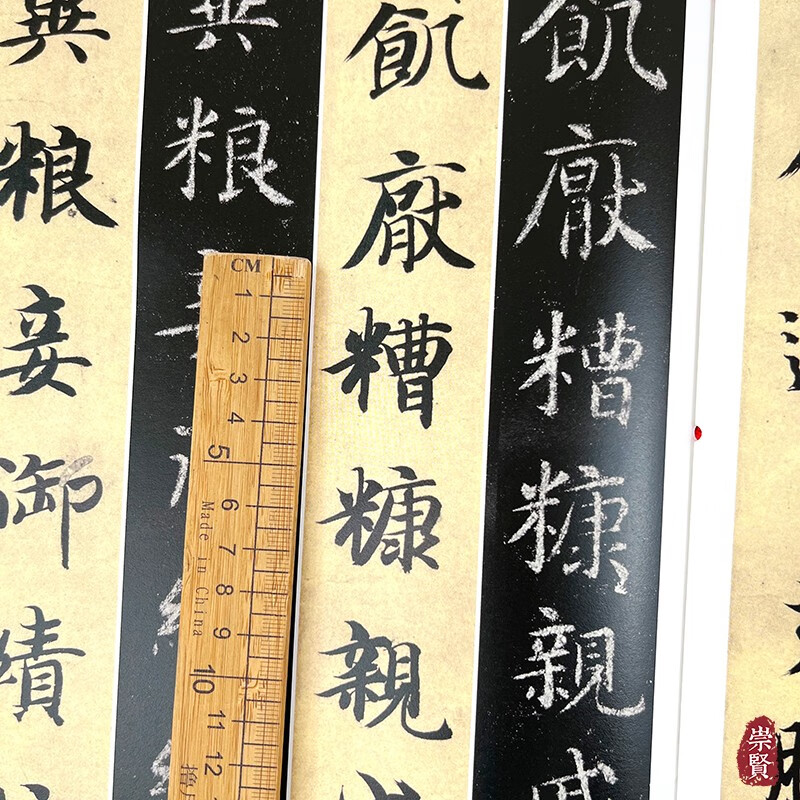 飢厭糟糠親戚
飢厭糟糠親
異粮
異粮妾御績
CM
1
2
3
4
5
6
7
8
9
10
11
12
Made in China
崇賢